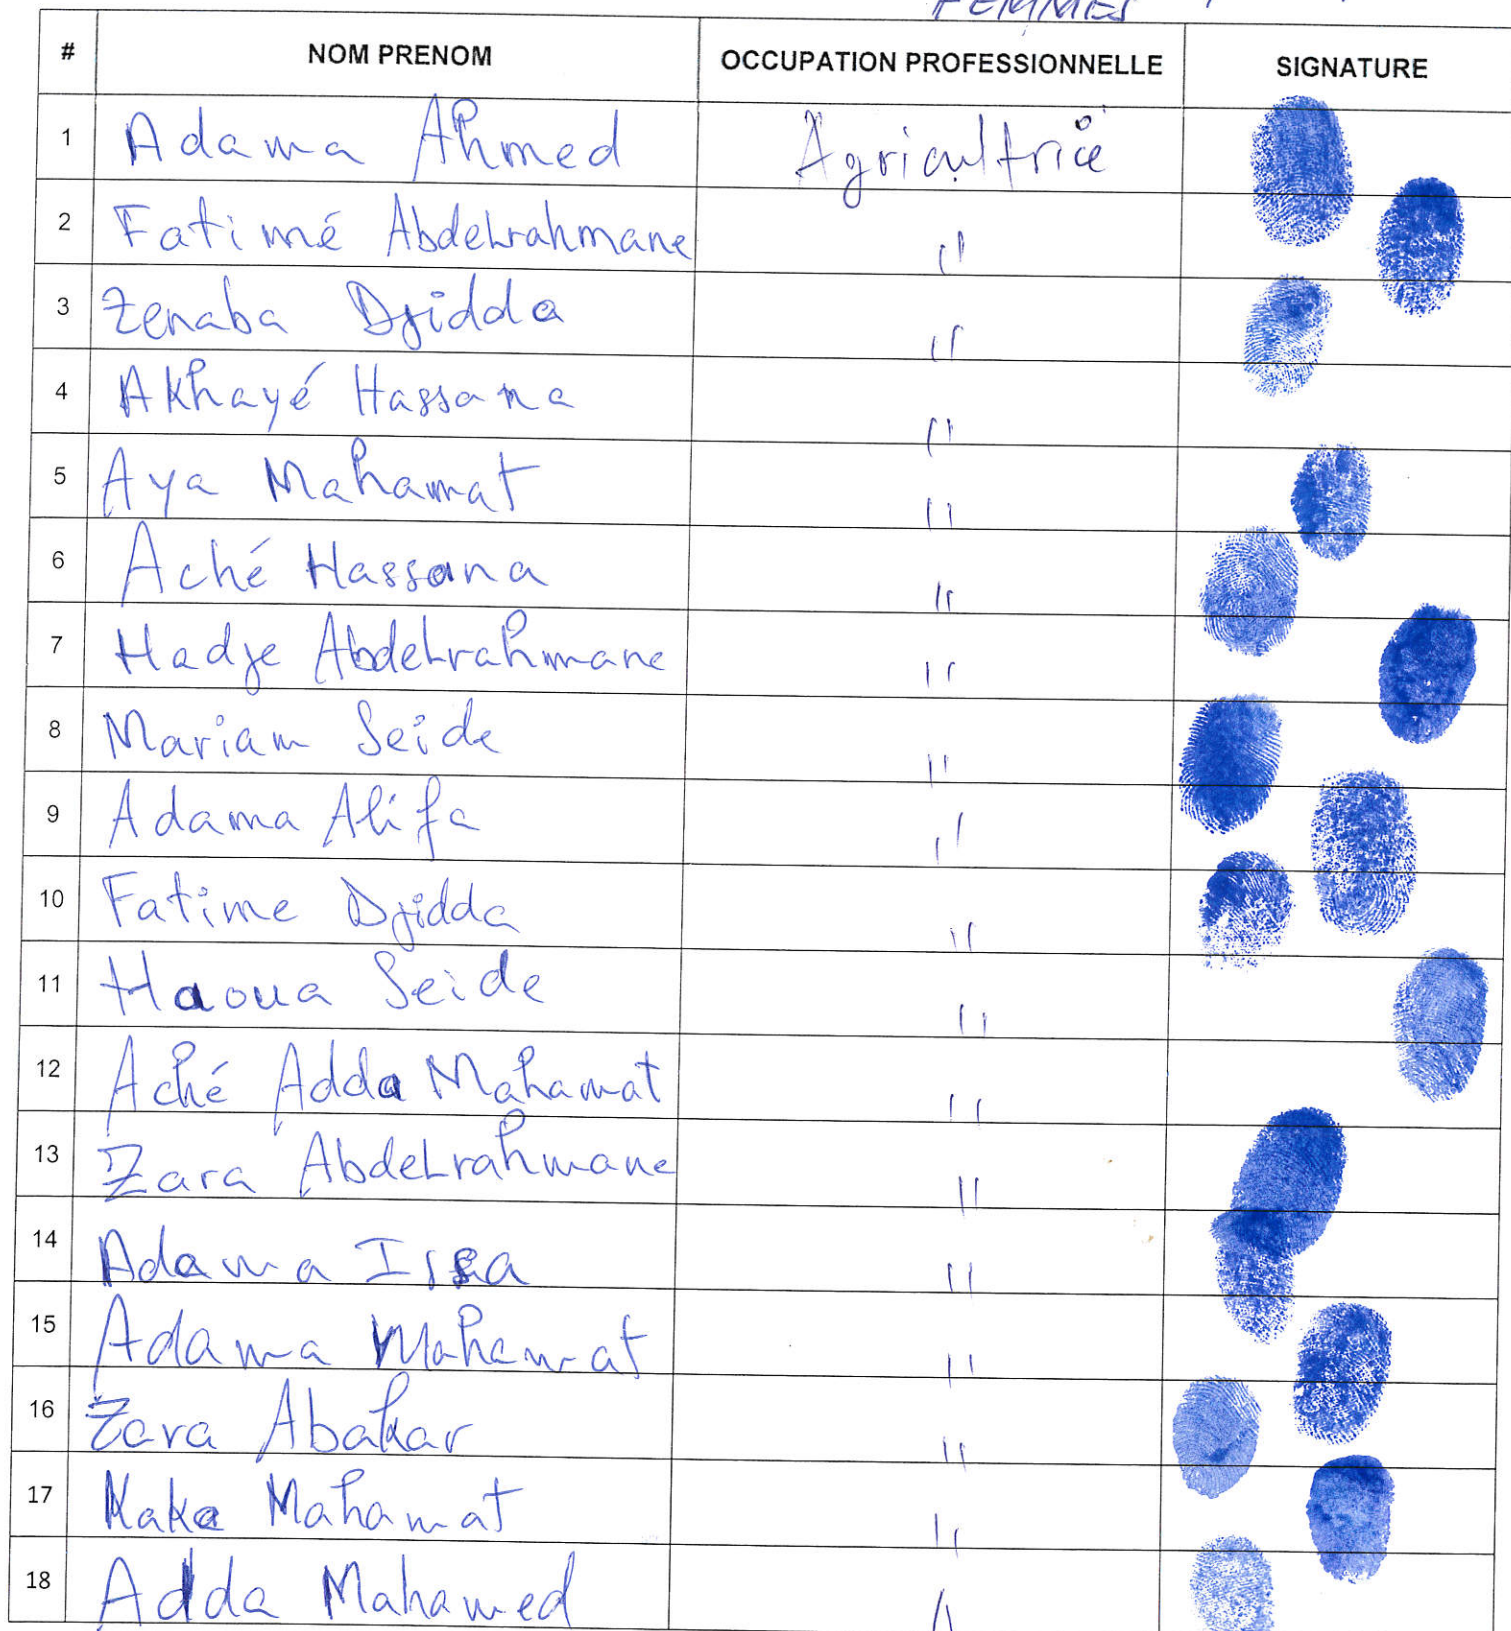 FEMMES
# NOM PRENOM OCCUPATION PROFESSIONNELLE SIGNATURE
1 Adama Ahmed Agricultrice
2 Fatimé Abdelrahmane "
3 Zenaba Djidda "
4 Akhayé Hassana "
5 Aya Mahamat "
6 Aché Hassana "
7 Hadje Abdelrahmane "
8 Mariam Seide "
9 Adama Alifa "
10 Fatime Djidda "
11 Haoua Seide "
12 Aché Adda Mahamat "
13 Zara Abdelrahmane "
14 Adama Issa "
15 Adama Mahamat "
16 Zara Abakar "
17 Kaka Mahamat "
18 Adda Mahamed "